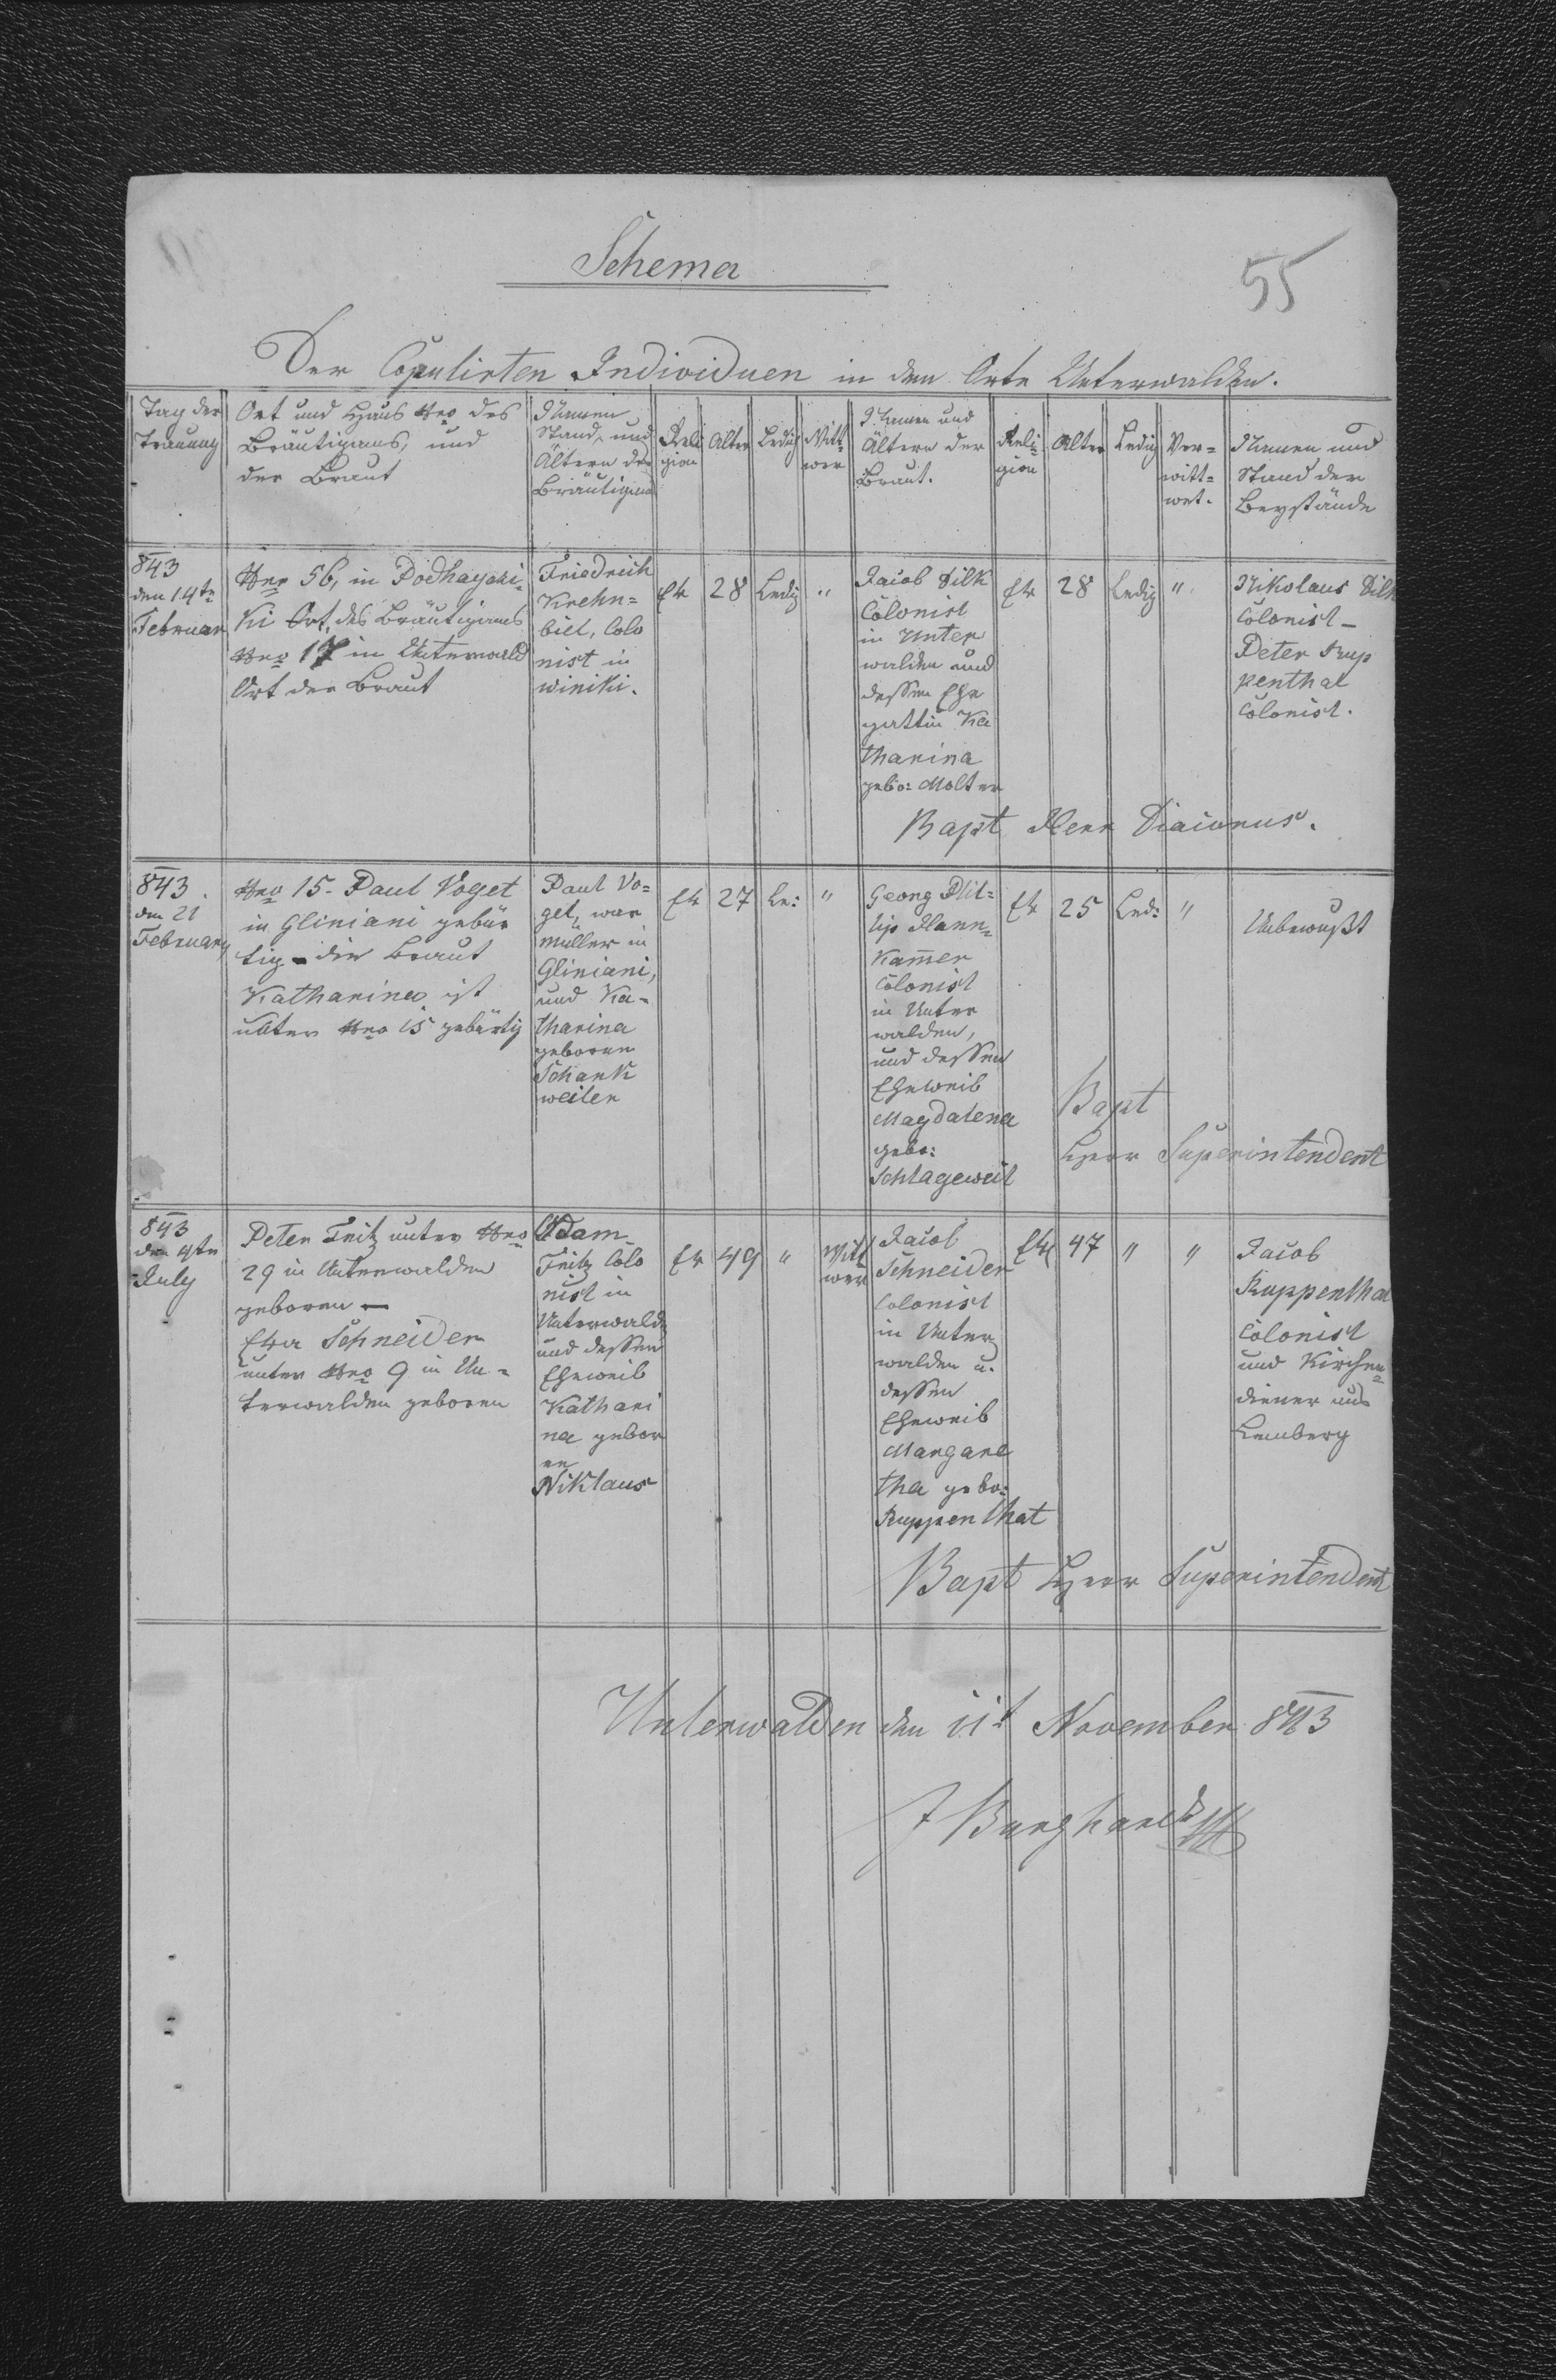 55
Schema
Der Copulirten Individuen in dem Orte Unterwalden.
Tag der
Trauung
Ort und Haus Nro des
Bräutigams, und
der Braut
Namen
Stand, und
Ältern des
Bräutigams
Reli
gion
Alter
Ledig
Witt-
wer
Namen und
Ältern der
Braut.
Reli-
gion
Alter
Ledig
Ver-
witt-
wet.
Namen und
Stand der
Beystände
843
den 14te
Februar
Nro 56, in Podhayczi-
ki Ort des Bräutigams
Nro 17 in Unterwald
Ort der Braut
Friedrich
Krehn-
biel, Colo
nist in
Winiki.
Ev
28
Ledig
"
Jacob Dilk
Colonist
in Unter
walden und
dessen Ehe
gattin Ka
tharina
gebo: Molter
Ev
28
Ledig
"
Nikolaus Dilk
Colonist -
Peter Rup
penthal
Colonist.
Bapt Herr Diaconus.
843
den 21
February
Nro 15 - Paul Voget
in Gliniani gebür
tig - die Braut
Katharina ist
unter Nro 15 gebürtig
Paul Vo-
get, war
Müller in
Gliniani,
und Ka-
tharina
geborene
Schank
weiler
Ev
27
Le:
"
Georg Phi-
lip Hann-
kamer
Colonist
in Unter
walden,
und dessen
Eheweib
Magdalena
gebo:
Schlageweit
Ev
25
Led:
"
Unbewußt
Bapt
Herr Superintendent
843
den 4te
July
Peter Fritz unter Nro
29 in Unterwalden
geboren —
Eva Schneider
unter Nro 9 in Un-
terwalden geboren
Adam
Fritz Colo
nist in
Unterwalde
und dessen
Eheweib
Kathari
na gebor
en
Niklaus
Ev
49
"
Witt
wer
Jacob
Schneider
Colonist
in Unter
walden u.
dessen
Eheweib
Margare
tha gebo:
Ruppenthal
Ev
47
"
"
Jacob
Ruppenthal
Colonist
und Kirchen-
diener aus
Lemberg
Bapt Herr Superintendent
Unterwalden den 11t November 843
J Burghardt